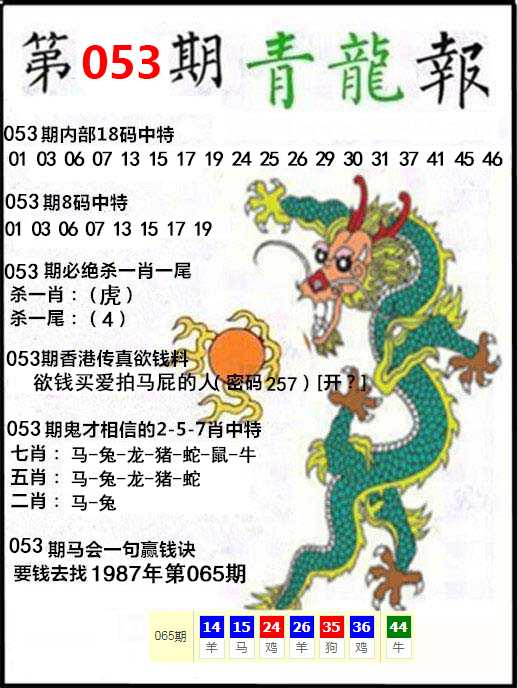 第053期 青龍報
053期内部18码中特
01 03 06 07 13 15 17 19 24 25 26 29 30 31 37 41 45 46
053期8码中特
01 03 06 07 13 15 17 19
053 期必绝杀一肖一尾
杀一肖：（虎）
杀一尾：（4）
053期香港传真欲钱料
欲钱买爱拍马屁的人(密码257)[开?]
053期鬼才相信的2-5-7肖中特
七肖：马-兔-龙-猪-蛇-鼠-牛
五肖：马-兔-龙-猪-蛇
二肖：马-兔
053期马会一句赢钱诀
要钱去找1987年第065期
065期 14 15 24 26 35 36 44
羊 马 鸡 羊 狗 鸡 牛